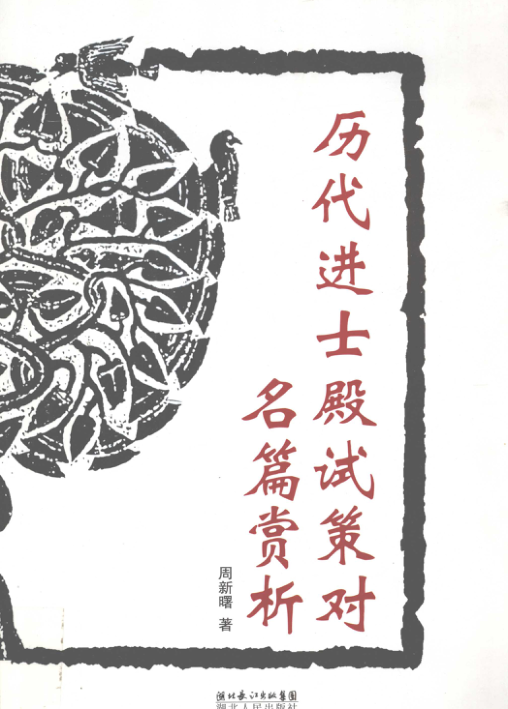 历代进士殿试策对
名篇赏析
周新曙 著
湖北长江出版集团
湖北人民出版社